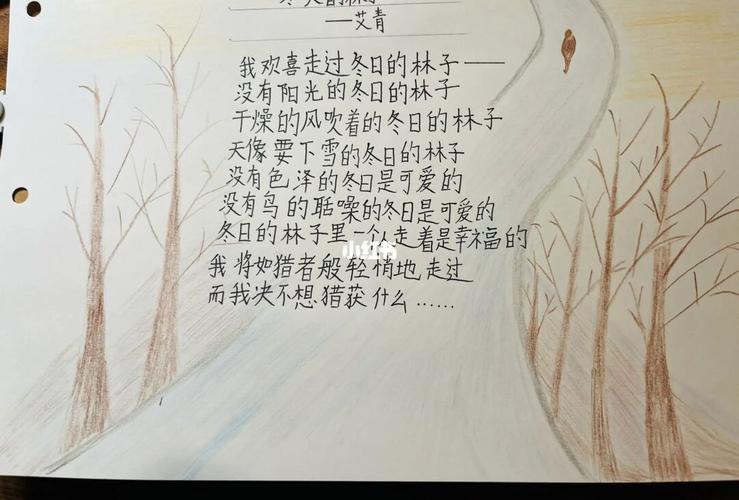 ——艾青
我欢喜走过冬日的林子——
没有阳光的冬日的林子
干燥的风吹着的冬日的林子
天像要下雪的冬日的林子
没有色泽的冬日是可爱的
没有鸟的聒噪的冬日是可爱的
冬日的林子里一个人走着是幸福的
我将如猎者般轻悄地走过
而我决不想猎获什么……
小红书